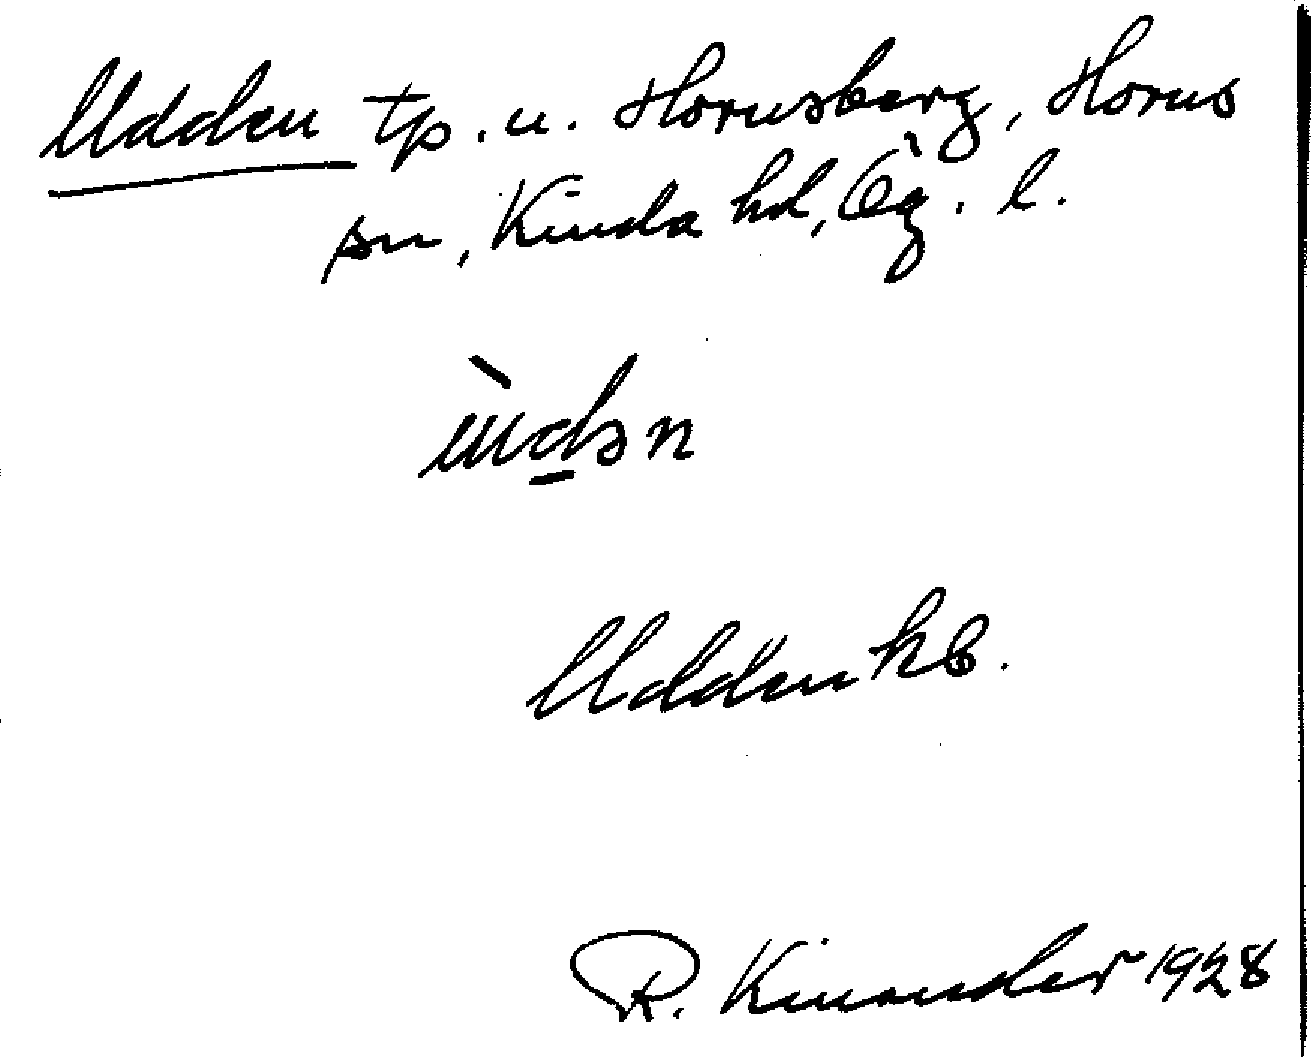 Udden tp. u. Hornsberg, Horns
sn, Kinda hd, Ög. l.
Udden kb.
R. Kinander 1928